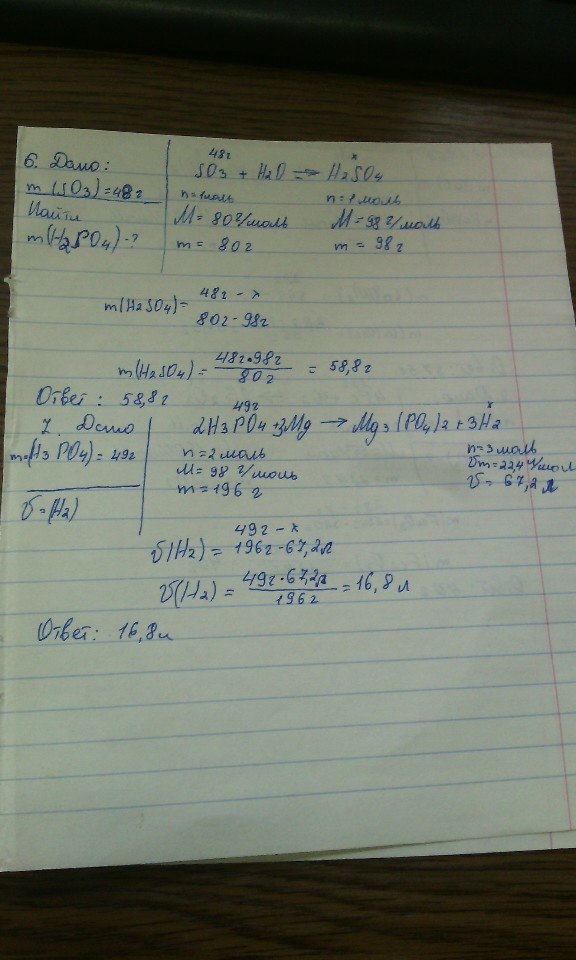 6. Дано:
m(SO3)=48г
Найти
m(H2PO4)-?
48г x
SO3 + H2O => H2SO4
n=1моль n=1моль
M=80г/моль M=98г/моль
m= 80г m= 98г
m(H2SO4)= 48г - x
80г-98г
m(H2SO4)= 48г•98г = 58,8г
80г
Ответ: 58,8г
7. Дано
m=(H3PO4)=49г
V=(H2)
49г x
2H3PO4+3Mg → Mg3(PO4)2+3H2
n=2моль n=3моль
M=98 г/моль Vm=22,4 л/моль
m=196 г V= 67,2 л
V(H2)= 49г - x
196г-67,2л
V(H2)= 49г•67,2л = 16,8 л
196г
Ответ: 16,8л